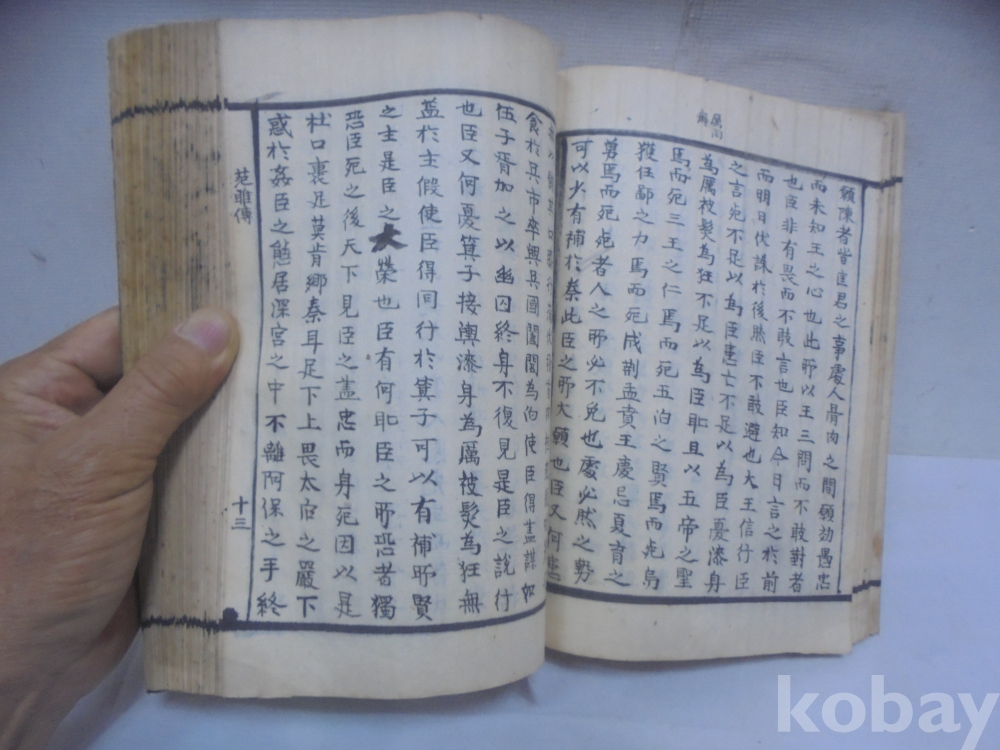 願陳者皆匡君之事處人骨肉之間願効愚忠
而未知王之心也此所以王三問而不敢對者
也臣非有畏而不敢言也臣知今日言之於前
而明日伏誅於後然臣不敢避也大王信行臣
之言死不足以為臣患亡不足以為臣憂漆身
為厲被髮為狂不足以為臣恥且以五帝之聖
焉而死三王之仁焉而死五泊之賢焉而死烏
獲任鄙之力焉而死成荊孟賁王慶忌夏育之
勇焉而死死者人之所必不免也處必然之勢
可以少有補於秦此臣之所大願也臣又何患
食於吳市卒興吳國闔閭為伯使臣得盡謀如
伍子胥加之以幽囚終身不復見是臣之說行
也臣又何憂箕子接輿漆身為厲被髮為狂無
益於主假使臣得同行於箕子可以有補所賢
之主是臣之大榮也臣有何恥臣之所恐者獨
恐臣死之後天下見臣之盡忠而身死因以是
杜口裹足莫肯鄉秦耳足下上畏太后之嚴下
惑於姦臣之態居深宮之中不離阿保之手終
范雎傳
十三
kobay